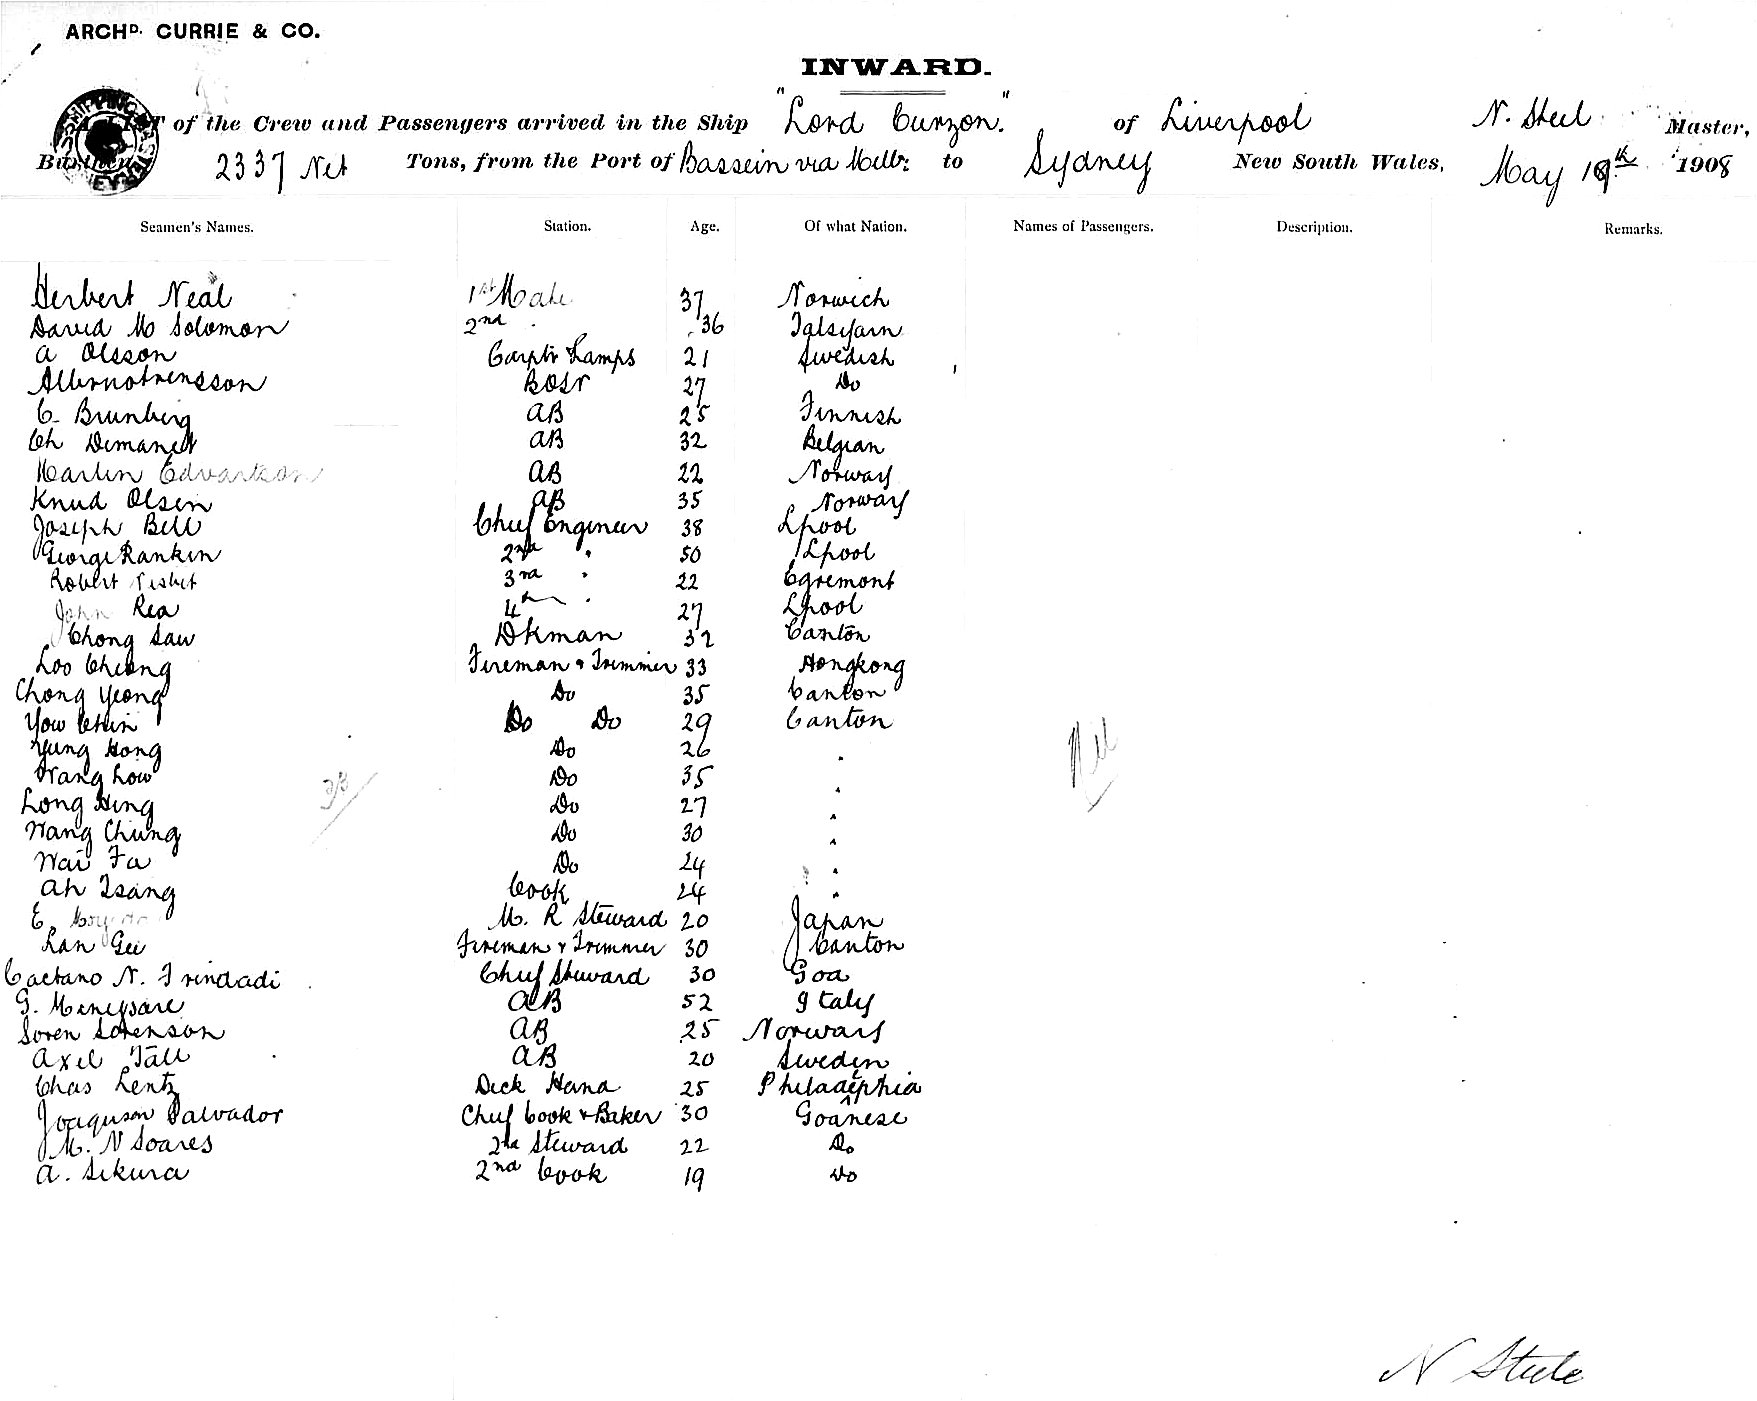 ARCHD. CURRIE & CO.
INWARD.
A LIST of the Crew and Passengers arrived in the Ship "Lord Curzon." of Liverpool N. Steel Master,
Burthen 2337 Net Tons, from the Port of Bassein via Melb: to Sydney New South Wales, May 19th 1908
Seamen's Names. Station. Age. Of what Nation. Names of Passengers. Description. Remarks.
Herbert Neal 1st Mate 37 Norwich
David M Solomon 2nd " 36 Talsyarn
A Olsson Carptr & Lamps 21 Swedish
BOSn 27 Do
C. Brunberg AB 25 Finnish
Ch Demanet AB 32 Belgian
Martin Edvartson AB 22 Norway
Knud Olsen AB 35 Norway
Joseph Bell Chief Engineer 38 Lpool
George Rankin 2nd " 50 Lpool
Robert Nisbet 3rd " 22 Egremont
John Rea 4th " 27 Lpool
Chong Saw Dkman 32 Canton
Loo Cheong Fireman & Trimmer 33 Hongkong
Chong Yeong Do 35 Canton
Yow Chin Do Do 29 Canton
Yung Hong Do 26 "
Wang Low Do 35 "
Long Hing Do 27 "
Wang Chung Do 30 "
Wai Fa Do 24 "
Ah Tsang Cook 24 "
E. M. R Steward 20 Japan
Lan Gee Fireman & Trimmer 30 Canton
Caetano N. Trindadi Chief Steward 30 Goa
G. AB 52 Italy
Soren Sorenson AB 25 Norway
Axel Täll AB 20 Sweden
Chas Lentz Deck Hand 25 Philadelphia
Joaquson Salvador Chief Cook & Baker 30 Goanese
M. N Soares 2nd Steward 22 Do
A. Sikura 2nd Cook 19 Do
Nil
33
N Steele